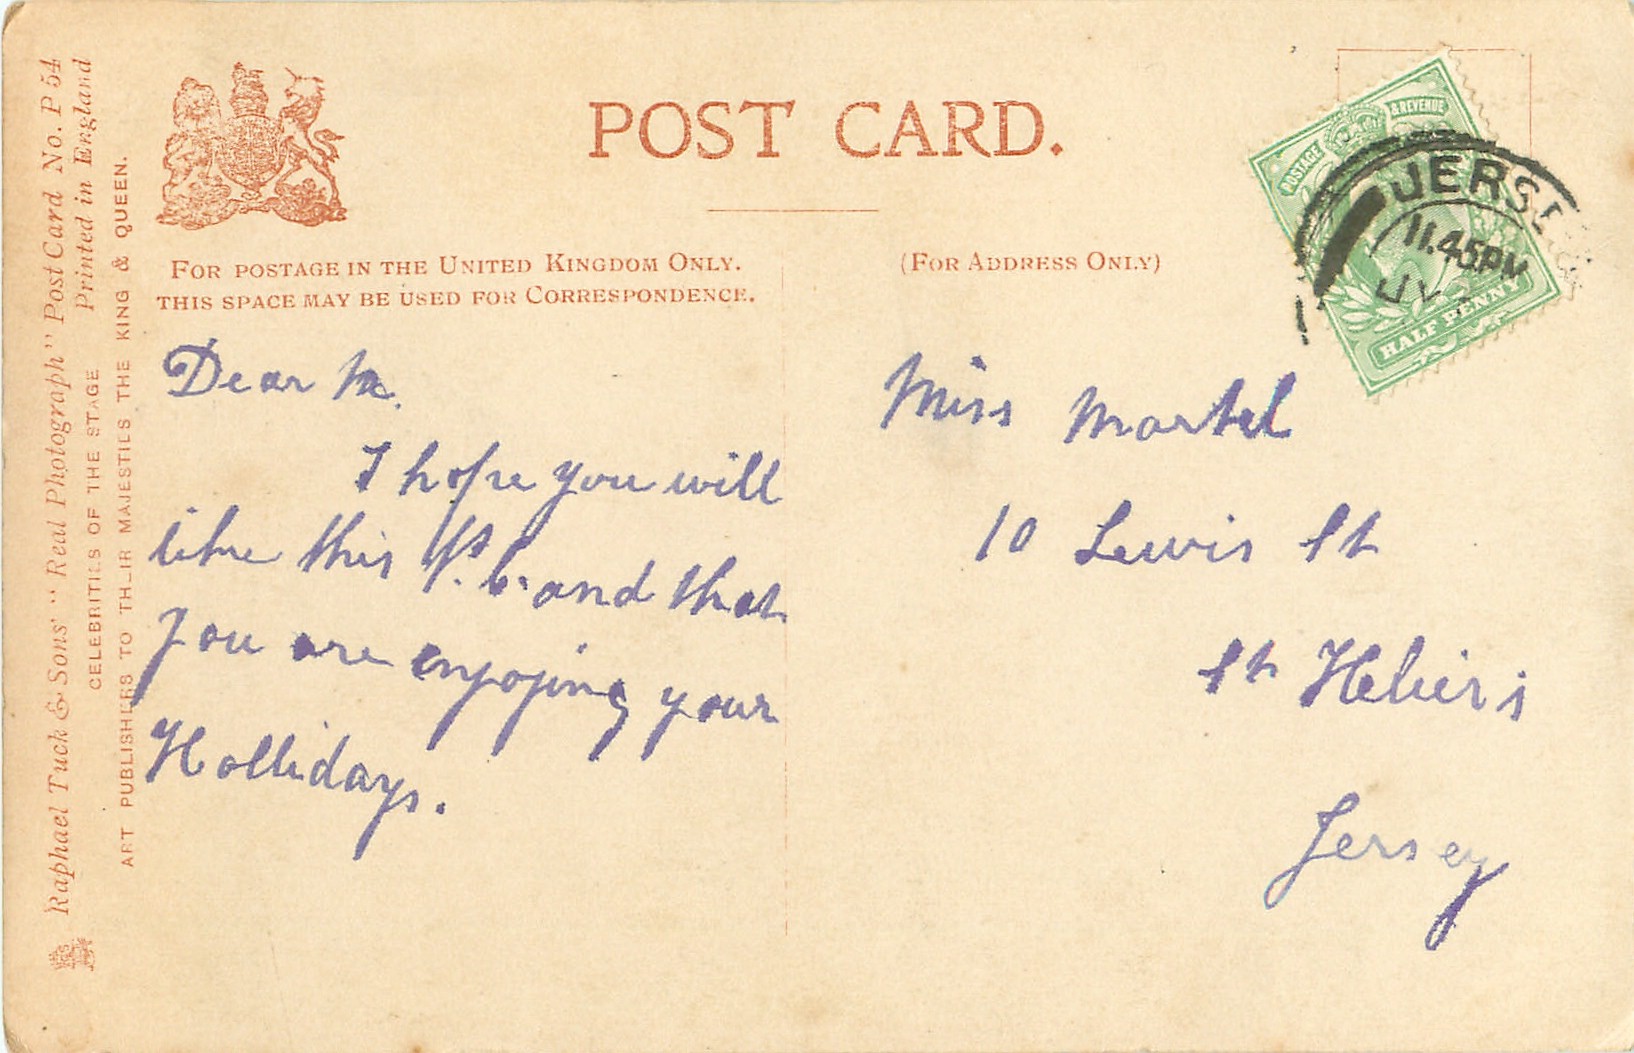 Raphael Tuck & Sons' "Real Photograph" Post Card No. P 54
Printed in England
CELEBRITIES OF THE STAGE
ART PUBLISHERS TO THEIR MAJESTIES THE KING & QUEEN.
POST CARD.
FOR POSTAGE IN THE UNITED KINGDOM ONLY.
THIS SPACE MAY BE USED FOR CORRESPONDENCE.
(FOR ADDRESS ONLY)
POSTAGE & REVENUE
HALF PENNY
JERSEY
11.45PM
JY
Dear M.
I hope you will
like this P.C. and that
you are enjoying your
Hollidays.
Miss Martel
10 Lewis St
St Heliers
Jersey